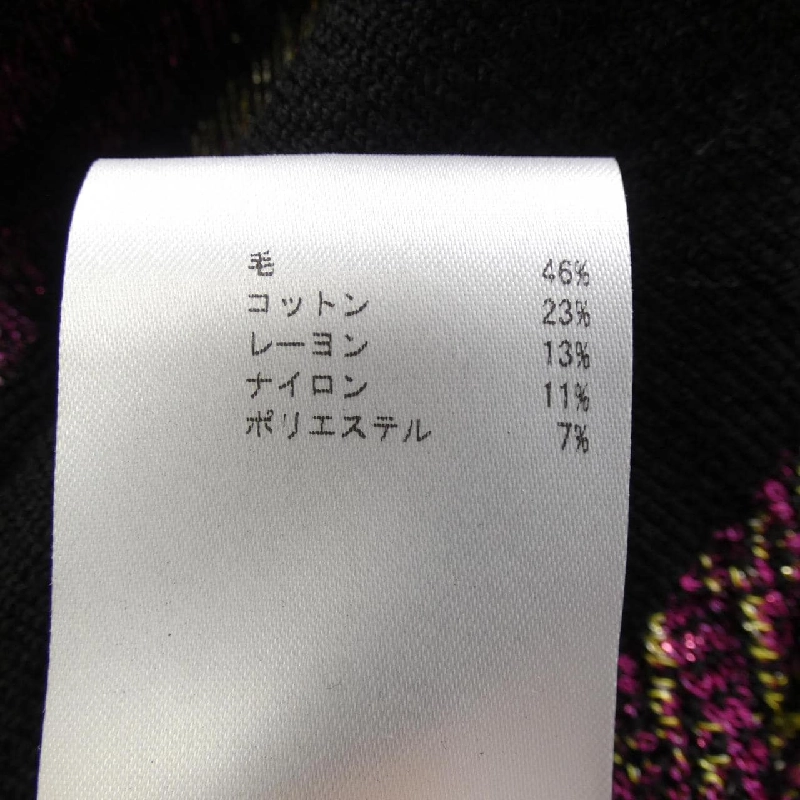 毛 46%
コットン 23%
レーヨン 13%
ナイロン 11%
ポリエステル 7%